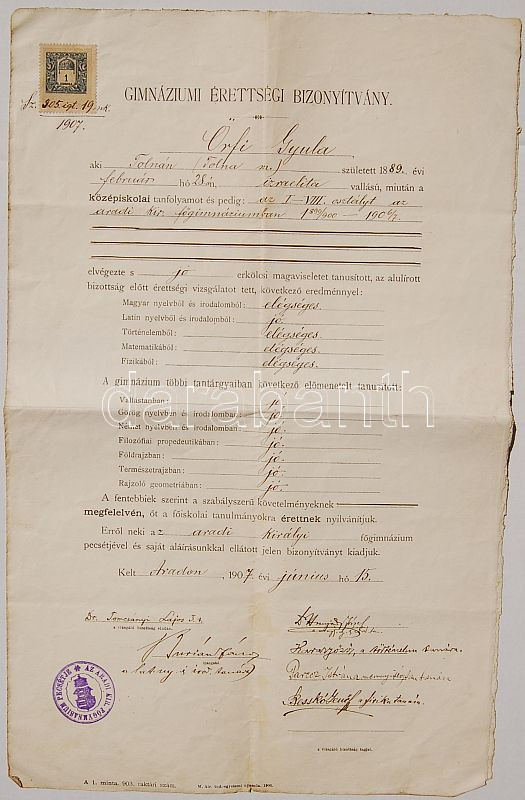 1
Sz. 305. 19
1907.
GIMNÁZIUMI ÉRETTSÉGI BIZONYÍTVÁNY.
Örfi Gyula
aki Tolnán (Tolna m.) született 1889. évi
február hó 28án, izraelita vallású, miután a
középiskolai tanfolyamot és pedig: az I–VIII. osztályt az
aradi kir. főgimnáziumban 1899/900 – 1906/7.
elvégezte s jó erkölcsi magaviseletet tanusított, az alulírt
bizottság előtt érettségi vizsgálatot tett, következő eredménnyel:
Magyar nyelvből és irodalomból: elégséges.
Latin nyelvből és irodalomból: jó.
Történelemből: elégséges.
Matematikából: elégséges.
Fizikából: elégséges.
A gimnázium többi tantárgyaiban következő előmenetelt tanusított:
Vallástanban: jó.
Görög nyelvben és irodalomban: jó.
Német nyelvben és irodalomban: jó.
Filozófiai propedeutikában: jó.
Földrajzban: jó.
Természetrajzban: jó.
Rajzoló geometriában: jó.
darabanth
A fentebbiek szerint a szabályszerű követelményeknek
megfelelvén, őt a főiskolai tanulmányokra érettnek nyilvánítjuk.
Erről neki az aradi királyi főgimnázium
pecsétjével és saját aláírásunkkal ellátott jelen bizonyítványt kiadjuk.
Kelt Aradon, 1907. évi június hó 15.
Dr. Tomcsányi Lajos
a vizsgáló bizottság elnöke.
igazgató
a történelem tanára.
a fizika tanára.
a vizsgáló bizottság tagjai.
AZ ARADI KIR. FŐGYMNASIUM PECSÉTJE
A 1. minta. 903. raktári szám.
M. kir. tud.-egyetemi nyomda.